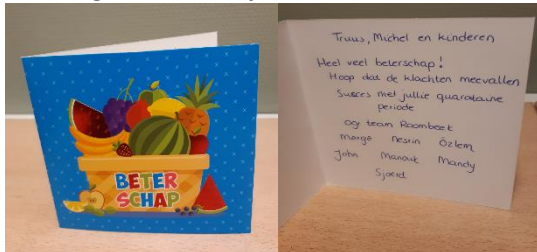 BETER
SCHAP
Truus, Michel en kinderen
Heel veel beterschap!
Hoop dat de klachten meevallen
Succes met jullie quarataine
periode
ogr team Roombeet
marga Nesrin Özlem
John Manouk Mandy
Sjoerd